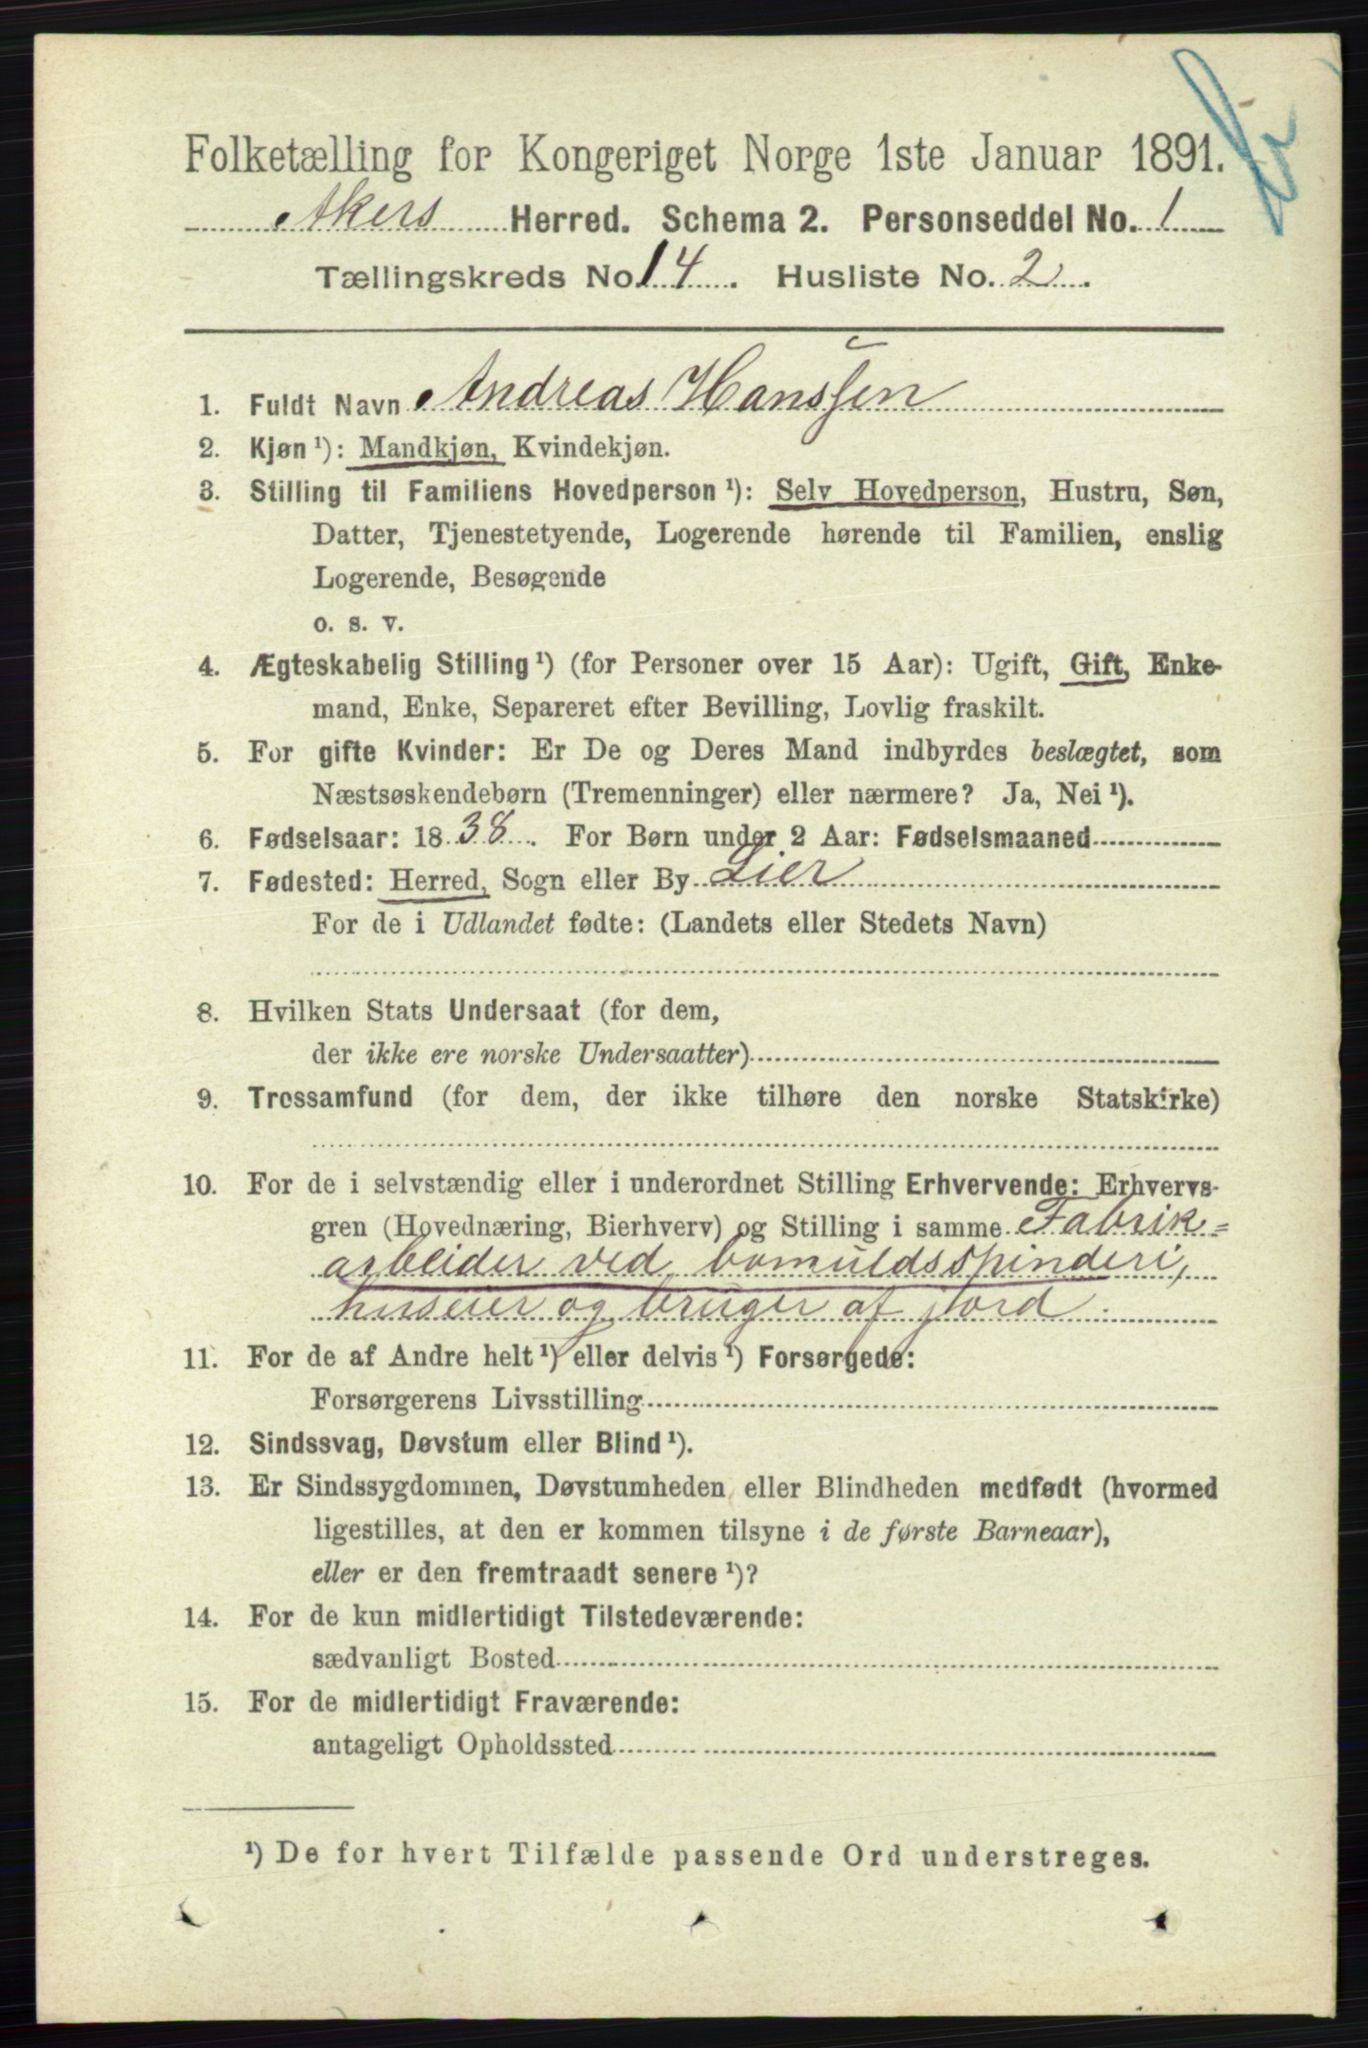 Folketælling for Kongeriget Norge 1ste Januar 1891.
Akers Herred. Schema 2. Personseddel No. 1
Tællingskreds No. 14. Husliste No. 2.
1. Fuldt Navn Andreas Hanssen
2. Kjøn ¹): Mandkjøn, Kvindekjøn.
3. Stilling til Familiens Hovedperson ¹): Selv Hovedperson, Hustru, Søn,
Datter, Tjenestetyende, Logerende hørende til Familien, enslig
Logerende, Besøgende
o. s. v.
4. Ægteskabelig Stilling ¹) (for Personer over 15 Aar): Ugift, Gift, Enke-
mand, Enke, Separeret efter Bevilling, Lovlig fraskilt.
5. For gifte Kvinder: Er De og Deres Mand indbyrdes beslægtet, som
Næstsøskendebørn (Tremenninger) eller nærmere? Ja, Nei ¹).
6. Fødselsaar: 1838. For Børn under 2 Aar: Fødselsmaaned
7. Fødested: Herred, Sogn eller By Lier
For de i Udlandet fødte: (Landets eller Stedets Navn)
8. Hvilken Stats Undersaat (for dem,
der ikke ere norske Undersaatter)
9. Trossamfund (for dem, der ikke tilhøre den norske Statskirke)
10. For de i selvstændig eller i underordnet Stilling Erhvervende: Erhvervs-
gren (Hovednæring, Bierhverv) og Stilling i samme Fabrik=
arbeider ved bomuldsspinderi,
huseier og bruger af jord.
11. For de af Andre helt ¹) eller delvis ¹) Forsørgede:
Forsørgerens Livsstilling
12. Sindssvag, Døvstum eller Blind ¹).
13. Er Sindssygdommen, Døvstumheden eller Blindheden medfødt (hvormed
ligestilles, at den er kommen tilsyne i de første Barneaar),
eller er den fremtraadt senere ¹)?
14. For de kun midlertidigt Tilstedeværende:
sædvanligt Bosted
15. For de midlertidigt Fraværende:
antageligt Opholdssted
¹) De for hvert Tilfælde passende Ord understreges.